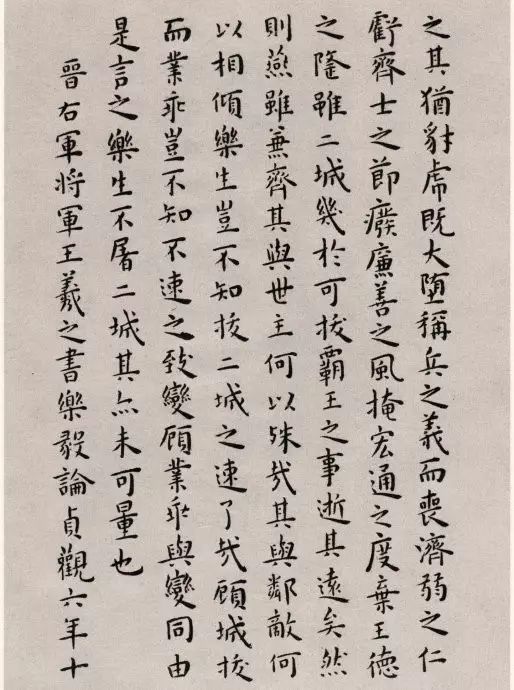 之其猶豺虎既大堕稱兵之義而喪濟弱之仁
虧齊士之節癈廉善之風掩宏通之度棄王德
之隆雖二城幾於可拔霸王之事逝其遠矣然
則燕雖兼齊其與世主何以殊哉其與鄰敵何
以相傾樂生豈不知拔二城之速了哉顧城拔
而業乖豈不知不速之致變顧業乖與變同由
是言之樂生不屠二城其亦未可量也
晉右軍将軍王羲之書樂毅論貞觀六年十